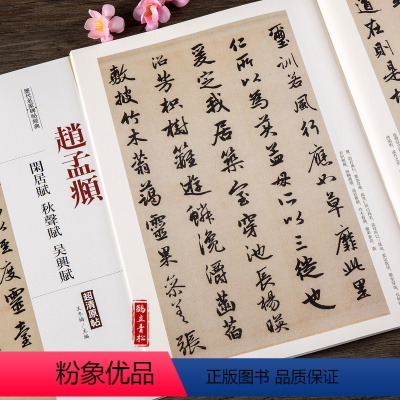 歷代名家碑帖經典
趙孟頫
閑居賦 秋聲賦 吴興賦
超清原帖
王冬梅 主編
度靈臺
道在則是
璽訓若風行應如草靡此里
仁所以為美孟母所以三徙也
爰定我居築室穿池長楊映
沼芳枳樹籬遊鱗瀺灂菡萏
敷披竹木蓊藹靈果參差張
鶴立青松
粉象优品